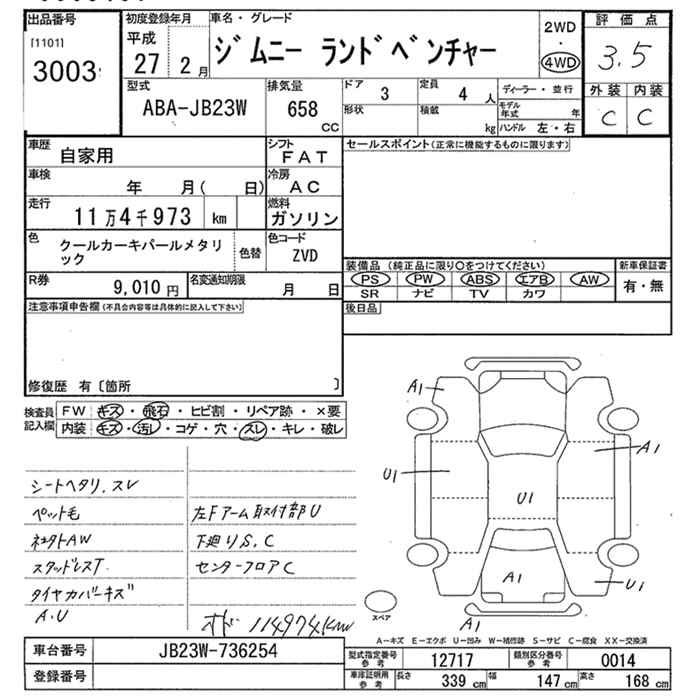 出品番号
[1101]
3003
初度登録年月
平成
27 2月
車名・グレード
ジムニー ランドベンチャー
2WD
・
4WD
評価点
3.5
外装 内装
C C
型式
ABA-JB23W
排気量
658
CC
ドア
3
定員
4 人
形状
積載
kg
ディーラー・並行
モデル年式 年
ハンドル 左・右
車歴
自家用
シフト
FAT
車検
年 月( 日)
冷房
AC
走行
11万4千973 km
燃料
ガソリン
色
クールカーキパールメタリック
色替
色コード
ZVD
R券
9,010 円
名変通知期限
月 日
セールスポイント(正常に機能するものに限ります)
装備品 (純正品に限り○をつけてください)
PS PW ABS エアB AW
SR ナビ TV カワ
新車保証書
有・無
後日品
注意事項申告欄(不具合内容等は具体的に記入して下さい)
修復歴 有〔箇所 〕
検査員記入欄
FW キズ・飛石・ヒビ割・リペア跡・×要
内装 キズ・汚レ・コゲ・穴・スレ・キレ・破レ
シートヘタリ.スレ
ペット毛
左Fアーム取付部U
社外AW
下廻りS.C
スタッドレスT
センターフロアC
タイヤカバーキズ
A.U
114974km
A1
A1
U1
U1
A1
U1
スペア
A1
A-キズ E-エクボ U-凹み W-補修跡 S-サビ C-腐食 XX-交換済
車台番号
JB23W-736254
登録番号
型式指定番号
参考
12717
類別区分番号
参考
0014
車庫証明用
参考
長さ 339 cm 幅 147 cm 高さ 168 cm